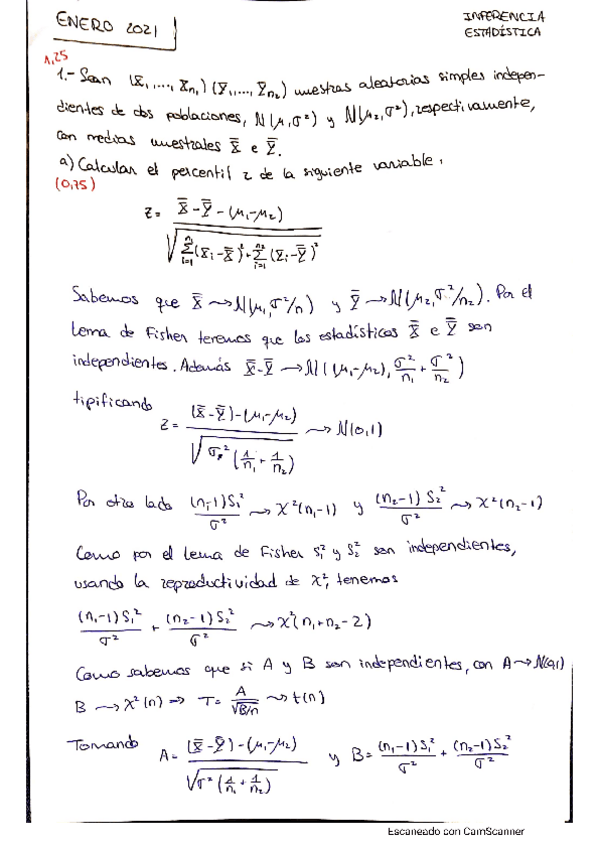 ENERO 2021
INFERENCIA
ESTADÍSTICA
1,25
1.- Sean (X₁,..., Xn₁) (Y₁,..., Yn₂) muestras aleatorias simples indepen-
dientes de dos poblaciones, N(μ₁,σ²) y N(μ₂,σ²), respectivamente,
con medias muestrales X̄ e Ȳ.
a) Calcular el percentil z de la siguiente variable:
(0,75)
Z = (X̄ - Ȳ - (μ₁-μ₂)) / √(∑ᵢ₌₁ⁿ¹ (Xᵢ-X̄)² + ∑ᵢ₌₁ⁿ² (Yᵢ-Ȳ)²)
Sabemos que X̄ ⟿ N(μ₁,σ²/n) y Ȳ ⟿ N(μ₂,σ²/n₂). Por el
lema de Fisher tenemos que los estadísticos X̄ e Ȳ son
independientes. Además X̄-Ȳ ⟿ N((μ₁-μ₂), σ²/n₁ + σ²/n₂)
tipificando
Z = ((X̄-Ȳ)-(μ₁-μ₂)) / √(σ²(1/n₁ + 1/n₂)) ⟿ N(0,1)
Por otro lado (n₁-1)S₁²/σ² ⟿ χ²(n₁-1) y (n₂-1)S₂²/σ² ⟿ χ²(n₂-1)
Como por el lema de Fisher S₁² y S₂² son independientes,
usando la reproductividad de χ², tenemos
(n₁-1)S₁²/σ² + (n₂-1)S₂²/σ² ⟿ χ²(n₁+n₂-2)
Como sabemos que si A y B son independientes, con A ⟿ N(0,1)
B ⟿ χ²(n) ⇒ T = A/√(B/n) ⟿ t(n)
Tomando A = ((X̄-Ȳ)-(μ₁-μ₂)) / √(σ²(1/n₁ + 1/n₂)) y B = (n₁-1)S₁²/σ² + (n₂-1)S₂²/σ²
Escaneado con CamScanner